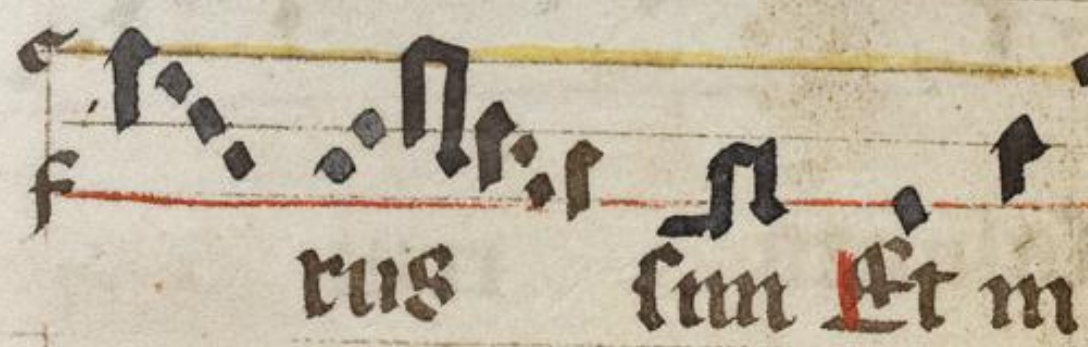 c
f
rus sun Et m